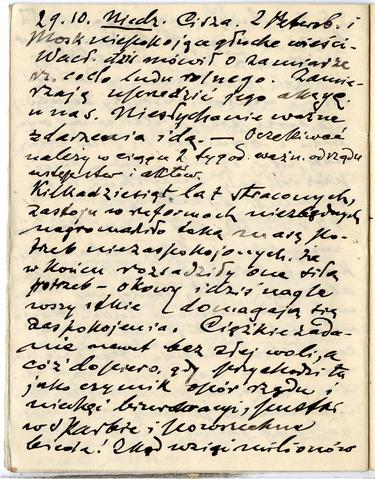 29.10. Niedz. Cisza. Z Petersb. i
Mosk. niepokojące głuche wieści.
Wacł. dziś mówił o zamiarze
rz. co do ludu rolnego. Zamie-
rzają uprzedzić jego akcję
u nas. Niesłychanie ważne
zdarzenia idą. — Oczekiwać
należy w ciągu 2 tygod. ważn. od rządu
ustępstw i aktów.
Kilkadziesiąt lat straconych,
zastoju w reformach niezbędnych
nagromadziło taką masę po-
trzeb niezaspokojonych, że
w końcu rozsadziły one siłą
potrzeb – okowy i dziś nagle
wszystkie domagają się
zaspokojenia. Ciężkie zada-
nie nawet bez złej woli, a
cóż dopiero, gdy przychodzi tu
jako czynnik opór rządu i
niechęć biurokracyi, pustki
w skarbie i powszechna
bieda! Skąd wziąć milionów